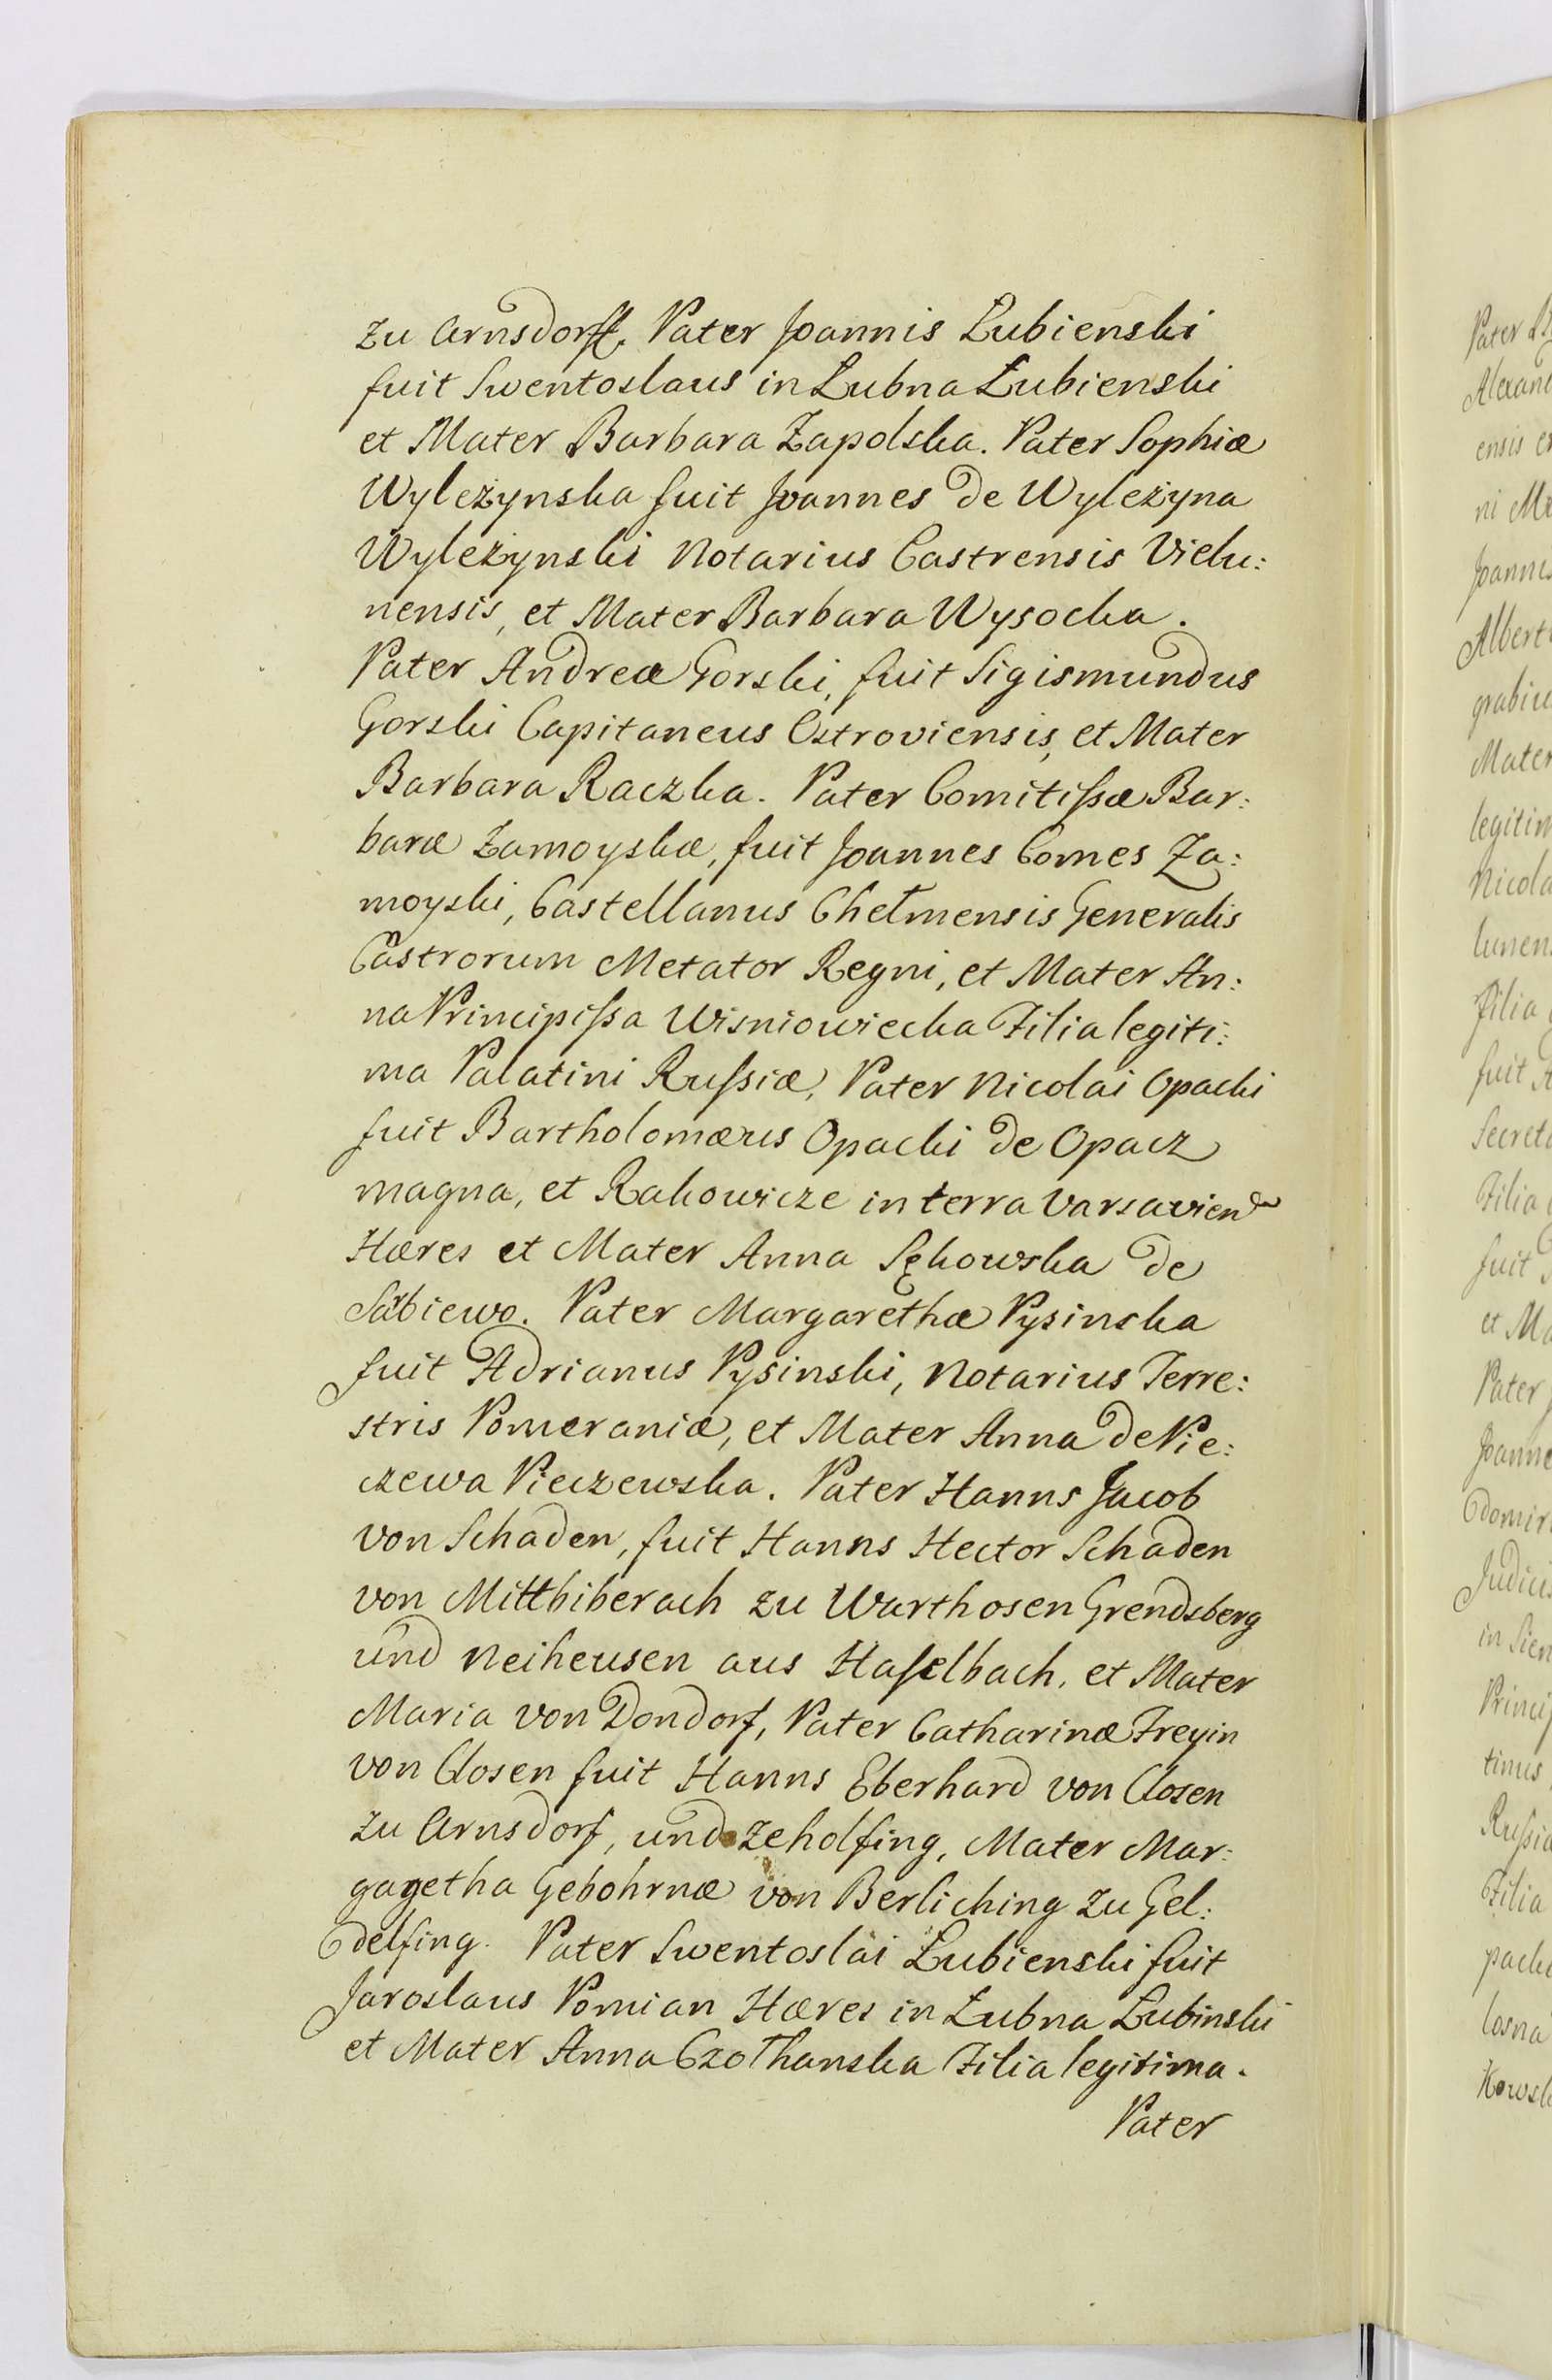 zu Arnsdorff. Pater Joannis Łubienski
fuit Swentoslaus in Łubna Łubienski
et Mater Barbara Zapolska. Pater Sophiæ
Wyleżynska fuit Joannes de Wyleżyna
Wyleżynski Notarius Castrensis Vielu:
nensis, et Mater Barbara Wysocka.
Pater Andreæ Gorski, fuit Sigismundus
Gorski Capitaneus Ostroviensis, et Mater
Barbara Raczka. Pater Comitissæ Bar:
baræ Zamoyskæ, fuit Joannes Comes Za:
moyski, Castellanus Chełmensis Generalis
Castrorum Metator Regni, et Mater An:
na Principissa Wisniowiecka Filia legiti:
ma Palatini Russiæ, Pater Nicolai Opacki
fuit Bartholomæus Opacki de Opacz
magna, et Rakowicze in terra Varsavien
Hæres et Mater Anna Sękowska de
Sabiewo. Pater Margarethæ Pysinska
fuit Adrianus Pysinski, Notarius Terre:
stris Pomeraniæ, et Mater Anna de Pie:
czewa Pieczewska. Pater Hanns Jacob
von Schaden, fuit Hanns Hector Schaden
von Mittbiberach zu Warthosen Grendsberg
und Neiheusen aus Haselbach, et Mater
Maria von Dondorf, Pater Catharinæ Freyin
von Closen fuit Hanns Eberhard von Closen
zu Arnsdorf, und Zeholfing, Mater Mar:
gagetha Gebohrnæ von Berliching zu Gel:
delfing. Pater Swentoslai Łubienski fuit
Jaroslaus Pomian Hæres in Łubna Łubinski
et Mater Anna Czolhanska Filia legitima.
Pater
Pater
Alexand
ensis et
ni
Joannes
Alberti
grabiu
Mater
legitim
Nicola
lunen
Filia
fuit
Secreta
Filia
fuit
et Ma
Pater
Joanne
domir
Judicis
in Sien
Princip
tinus
Russiæ
Filia
packi
losna
Kowsk